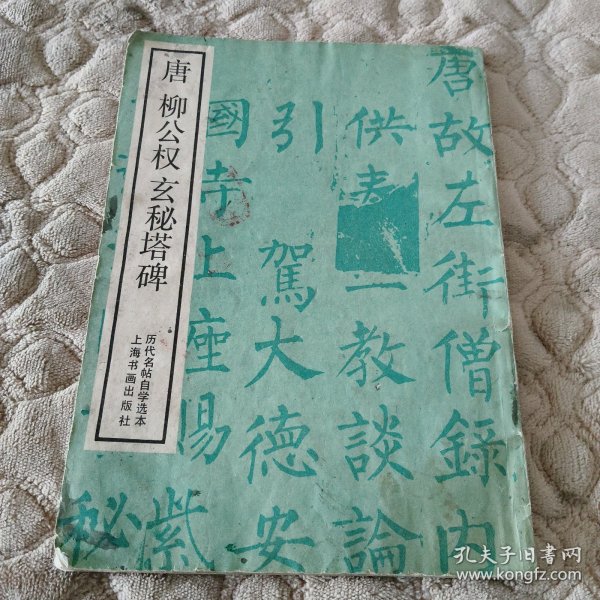 唐 柳公权 玄秘塔碑
历代名帖自学选本
上海书画出版社
唐故左街僧録内
供表一教談論
引駕大德安
國寺上座賜
紫
秘
孔夫子旧书网
www.kongfz.com